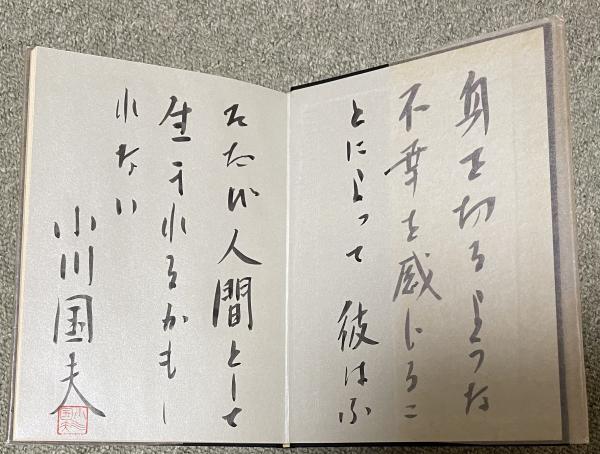 身を切るような
不幸を感じるこ
とによって 彼はふ
たたび人間として
生まれるかもし
れない
小川国夫